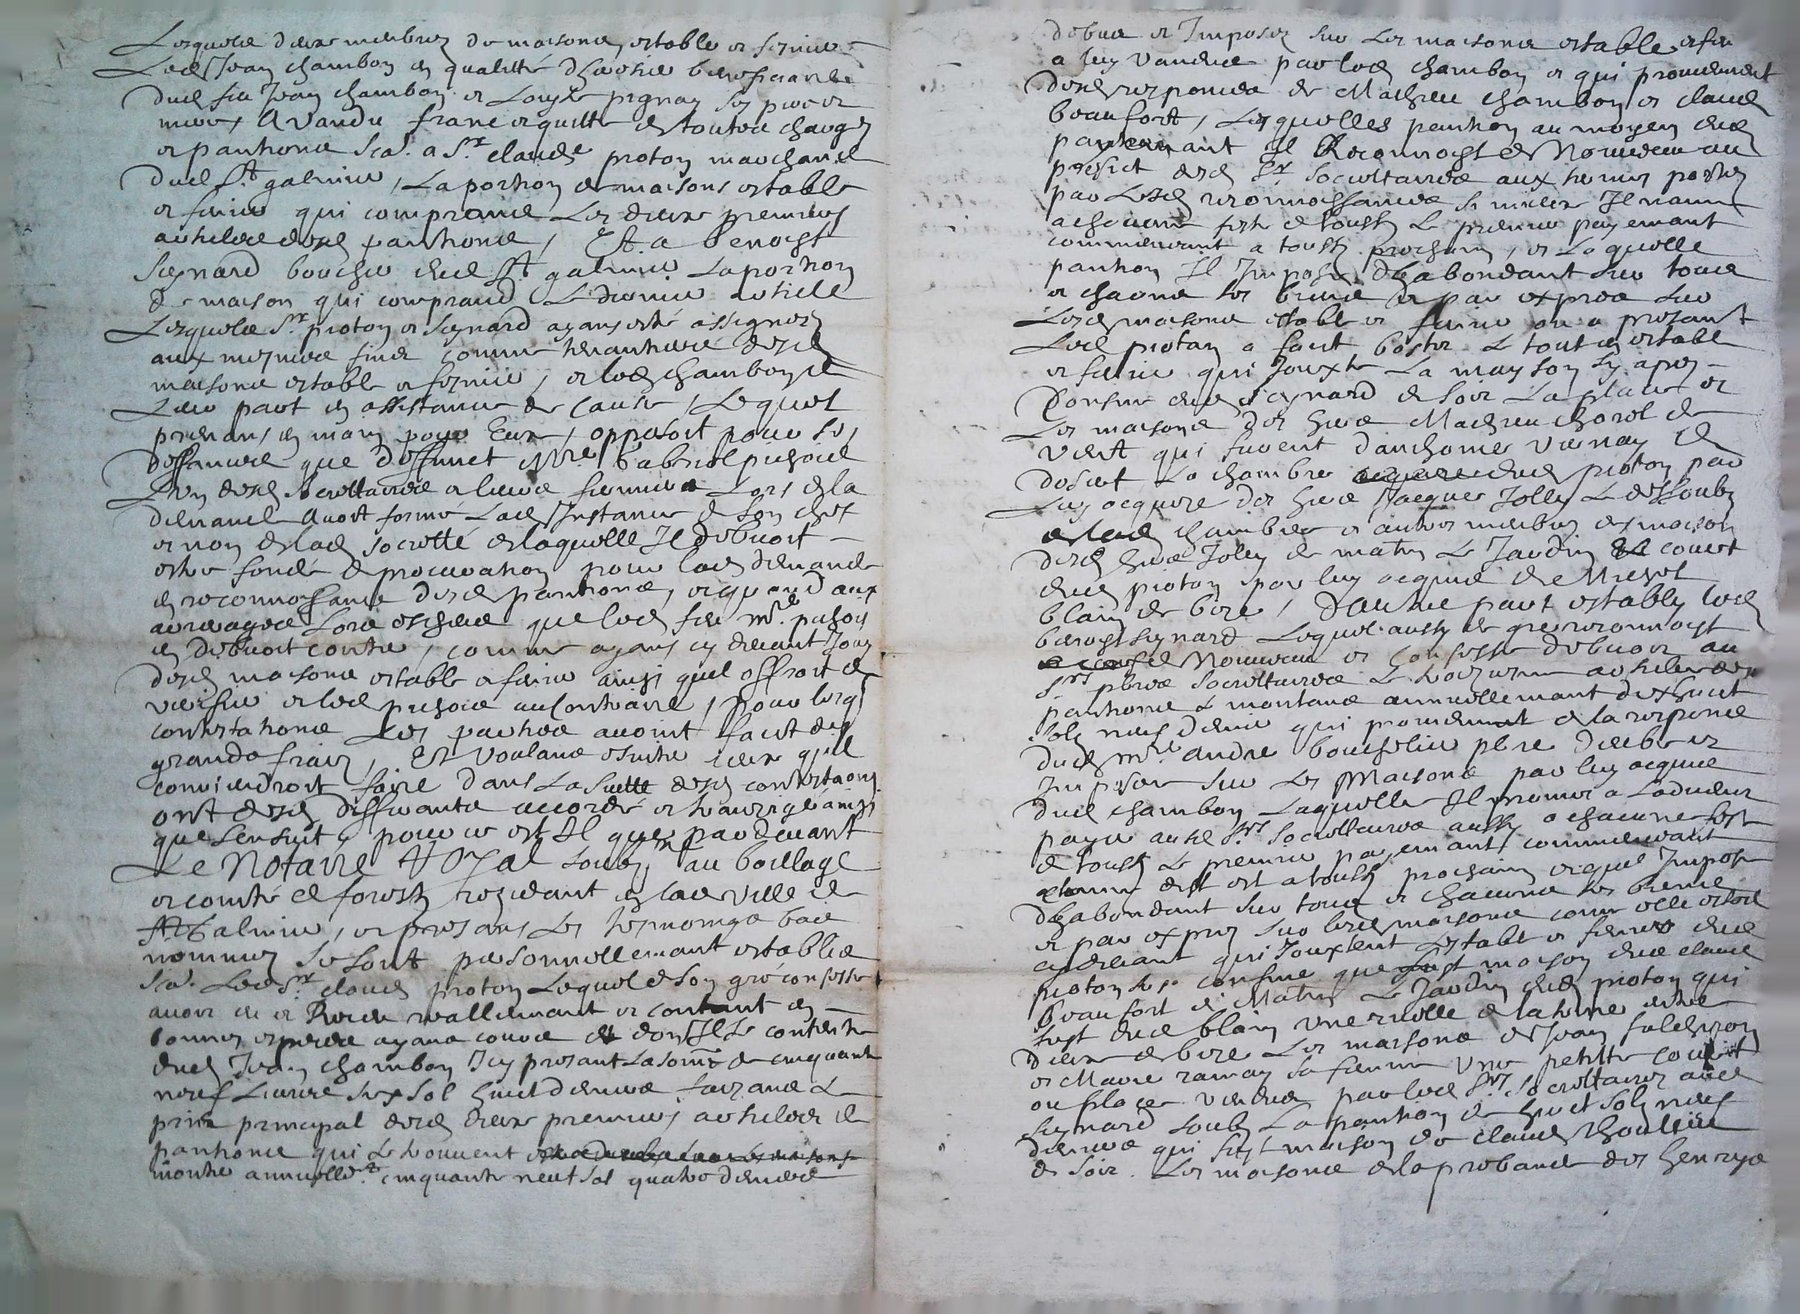 Lesquels deux membres de maisons, estable et feniere
Led Jean chambon en qualitté dhéritier beneficiaire
dud feu Jean chambon et Louyse pignay ses pere et
mere, A vandu franc et quitte de toutes charges
et panthons sca. a Sr. claude proton marchand
dud St galmier, La portion de maisons estable
et feniere qui comprand Les deux premiers
articles desd panthons, Et a benoist
Seignard boucher dud St galmier La portion
de maison qui comprand Le dernier article
Lesquels Sr. proton et Seignard ayans esté assignez
aux mesmes fins comme tenantiers desd
maisons estable et feniere, et led chambon
Leur part en assistance de cause, Lequel
prenans en main pour Eux, opposoit pour ses
deffances que deffunct Mre gabriel puhoid
L'un desd Societtaires a leur
demande Avoit formé Lad Instance de son chef
et non de lad Societté de laquelle Il debvoit
estre fondé de procuration pour lad demande
en reconnoissance desd panthons, et quand aux
arrerages Lors escheus que led feu Mre. puhoid
en debvoit contre, comme ayans cy devant Jouy
desd maisons estable et feniere ainsi quil offroit de
veriffier et led puhoid au contraire, pour lesq
contestations Les parties avoint faict des
grands frais, Et Voulans esviter ceux quil
conviendroit faire dans La suitte desd contestaons
ont desd differants accordé et transigé ainsi
que sensuit, pour ce est Il que pardevant
Le Notaire Royal soubz né au bailliage
et comté de forestz residant en lad ville de
St Galmier, et presans Les tesmoings bas
nommez se sont personnellemant establis
sca. Led Sr. claude proton Lequel de son gré confesse
avoir eu et Receu reallemant et contant en
bonnes especes ayans cours et dont Il se contente
dud Jean chambon Icy presant La some de cinquante
neuf Livres six sol huict deniers faizans Le
prix principal desd deux premiers articles de
panthons qui se trouvent
monter annuellemt. cinquante neuf sol quatre deniers
debue et Imposez sur Les maisons estable et feniere
a luy vandues par led chambon et qui proviennent
desd responces de Mathieu chambon et claude
beaufort, Lesquelles panthon au moyen dud
payemant Il Reconnoist de Nouveau au
proffict desd Srs Societtaires aux termes portez
par Lesd reconnoissances
a chacune feste de toussts Le premier payemant
commencant a toussts prochain, et Laquelle
panthon Il Impose dhabondant sur tous
et chacuns ses biens et par exprez sur
Lesd maisons estable et feniere ou a presant
Led proton a faict bastir Le tout en estable
et feniere qui Jouxte La mayson cy apres
confiné dud Seignard de soir La place et
Les maisons des hers Mathieu thorel de
vent qui furent danthoine vernay de
dessus La chambre dud proton par
Luy acquise des hers Jacques Jolly Le dessoubz
de lad chambre et autres membres de maison
desd hers Jolly de matin Le Jardin et court
dud proton par luy acquis de Michel
blain de bize, D'autre part estably led
benoist Seignard Lequel aussy de gre reconnoist
de Nouveau et confesse debvoir au
Srs ptres Societtaires Le troiziesme article desd
panthons se montans annuellemant dixhuict
solz neuf deniers qui proviennent de la responce
dud Mre andre boucholin ptre deube et
Imposee sur Les Maisons par luy acquis
dud chambon Laquelle Il promet a Ladvenir
payer ausd Srs Societtaires aussy a chacune feste
de toussts Le premier payemant commencant
a toussts prochain et quil Impose
dhabondant sur tous et chacuns ses biens
et par exprez sur lesd maisons comme elle estoit
cydevant qui Jouxtent Lestable et feniere dud
proton sus confiné que fust maison dud claude
beaufort de Matin Le Jardin dud proton qui
fust dud blain une ruelle et latrine entre
deux de bize Les maisons de Jean faleyron
et Marie ramay sa femme Une petitte court
ou place vendue par led Srs Societtaires aud
Seignard soubz La panthon de huict solz neuf
deniers qui fust maison de claude thoullieu
de soir Les maisons de la probande des henrys